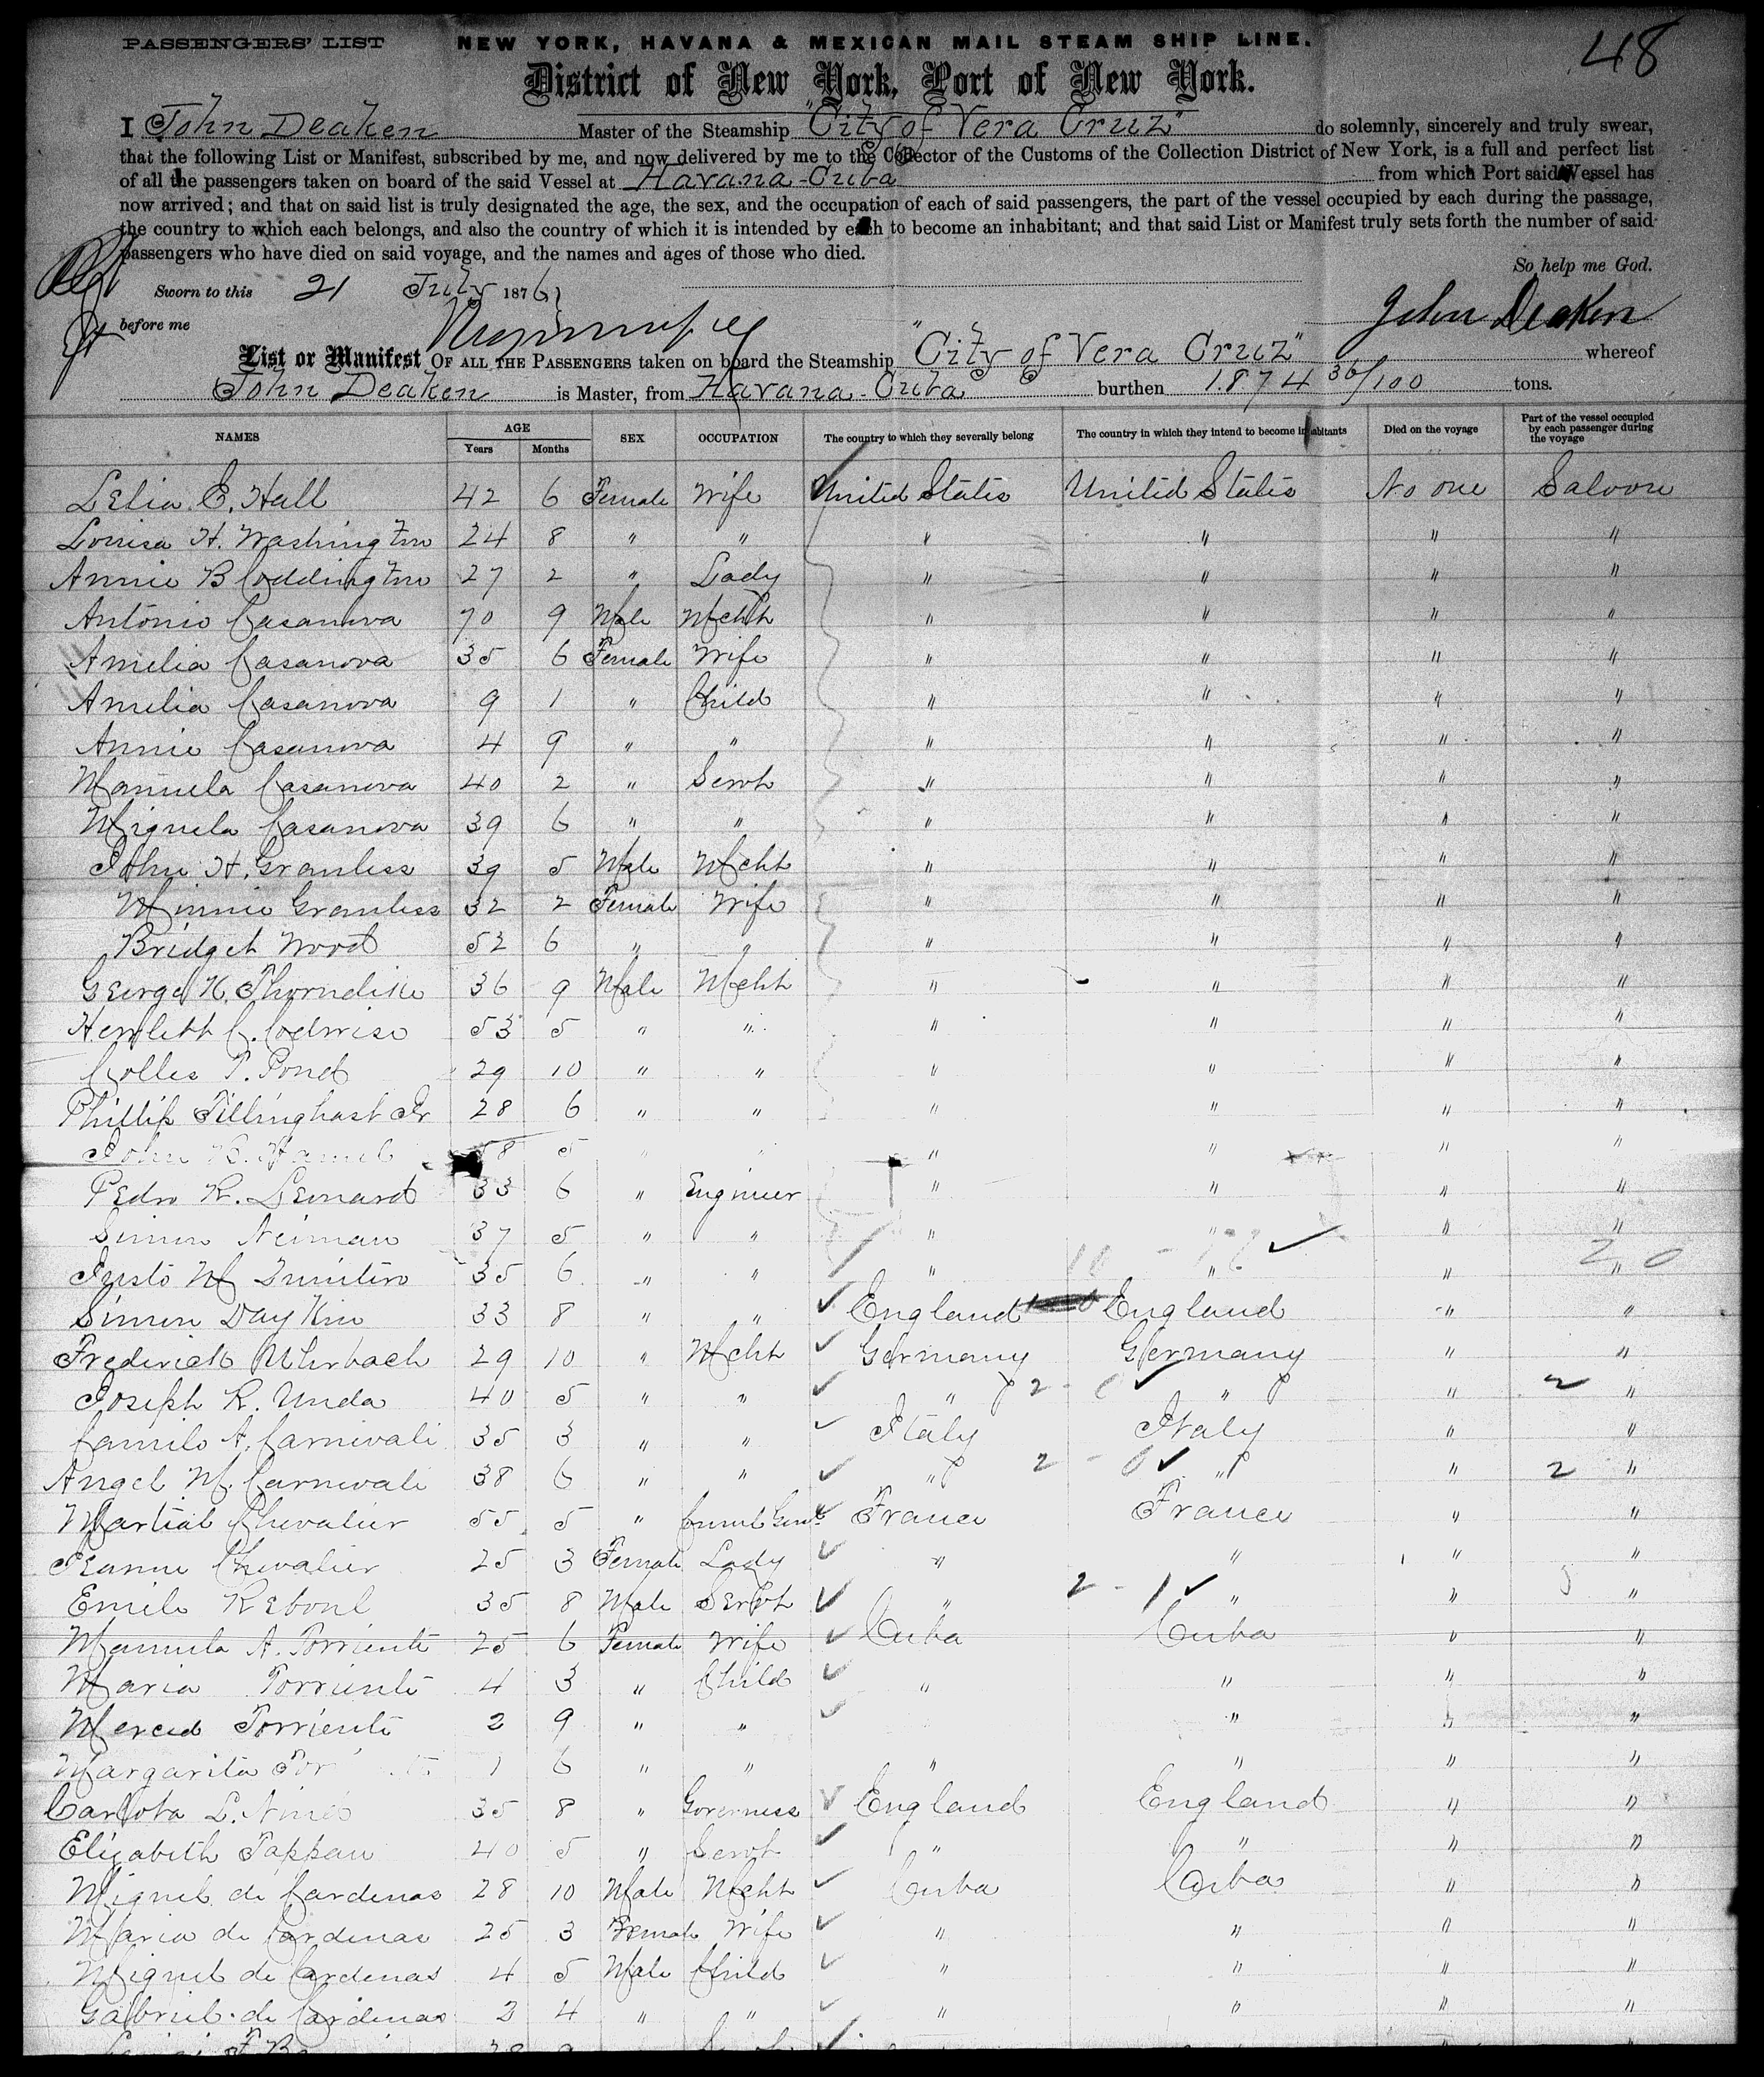 PASSENGERS' LIST NEW YORK, HAVANA & MEXICAN MAIL STEAM SHIP LINE. 48
District of New York, Port of New York.
I John Deaken Master of the Steamship "City of Vera Cruz" do solemnly, sincerely and truly swear,
that the following List or Manifest, subscribed by me, and now delivered by me to the Collector of the Customs of the Collection District of New York, is a full and perfect list
of all the passengers taken on board of the said Vessel at Havana-Cuba from which Port said Vessel has
now arrived; and that on said list is truly designated the age, the sex, and the occupation of each of said passengers, the part of the vessel occupied by each during the passage,
the country to which each belongs, and also the country of which it is intended by each to become an inhabitant; and that said List or Manifest truly sets forth the number of said
passengers who have died on said voyage, and the names and ages of those who died.
So help me God.
Sworn to this 21 July 1876
before me John Deaken
List or Manifest OF ALL THE PASSENGERS taken on board the Steamship "City of Vera Cruz" whereof
John Deaken is Master, from Havana-Cuba burthen 1.874 36/100 tons.
NAMES AGE Years Months SEX OCCUPATION The country to which they severally belong The country in which they intend to become inhabitants Died on the voyage Part of the vessel occupied by each passenger during the voyage
Lelia C. Hall 42 6 Female Wife United States United States No one Saloon
Louisa H. Washington 24 8 " " " " " "
Annie B Coddington 27 2 " Lady " " " "
Antonio Casanova 70 9 Male Mchht " " " "
Amelia Casanova 35 6 Female Wife " " " "
Amelia Casanova 9 1 " Child " " " "
Annie Casanova 4 9 " " " " " "
Manuela Casanova 40 2 " Servt " " " "
Miguela Casanova 39 6 " " " " " "
John H. Granliss 39 5 Male Mcht " " " "
Minnie Granliss 32 2 Female Wife " " " "
Bridget Wood 52 6 " " " " " "
George H. Thorndike 36 9 Male Mcht " " " "
Hewlett C. Codwise 53 5 " " " " " "
Colles T. Pond 29 10 " " " " " "
Phillip Tillinghast Jr 28 6 " " " " " "
John 58 5 " " " " " "
Pedro R. Leonard 33 6 " Engineer " " " "
Simon Neiman 37 5 " " " " " "
Justo M 35 6 " " " " " " 20
Simon Daykin 33 8 " " England England " "
Frederick Uhrbach 29 10 " Mcht Germany Germany " "
Joseph R. Unda 40 5 " " " 2 - 0 " " 2 "
Camilo A. Carnivali 35 3 " " Italy Italy " "
Angel M. Carnivali 38 6 " " " 2 - 0 " " 2 "
Martial Chevalier 55 5 " Consul Genl France France " "
Jeanne Chevalier 25 3 Female Lady " " " "
Emile Reboul 35 8 Male Servt " 2 - 1 " " "
Manuela A. Torriente 25 6 Female Wife Cuba Cuba " "
Maria Torriente 4 3 " Child " " " "
Merced Torriente 2 9 " " " " "
Margarita 1 6 " " " " " "
Carlota L. 35 8 " Governess England England " "
Elizabeth Tappan 40 5 " Servt " " " "
Miguel de Cardenas 28 10 Male Mcht Cuba Cuba " "
Maria de Cardenas 25 3 Female Wife " " " "
Miguel de Cardenas 4 5 Male Child " " " "
Gabriel de Cardenas 3 4 " " " " " "